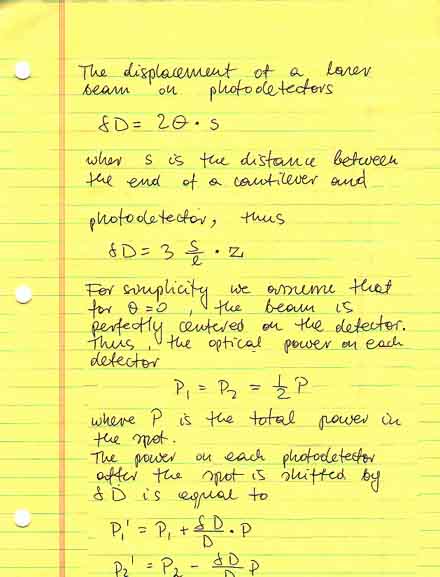 The displacement of a laser
beam on photodetectors
δD = 2θ · s
wher s is the distance between
the end of a cantilever and
photodetector, thus
δD = 3 s/l · z
For simplicity we assume that
for θ=0, the beam is
perfectly centered on the detector.
Thus, the optical power on each
detector
P₁ = P₂ = 1/2 P
where P is the total power in
the spot.
The power on each photodetector
after the spot is shifted by
δD is equal to
P₁' = P₁ + δD/D · P
P₂' = P₂ - δD/D P